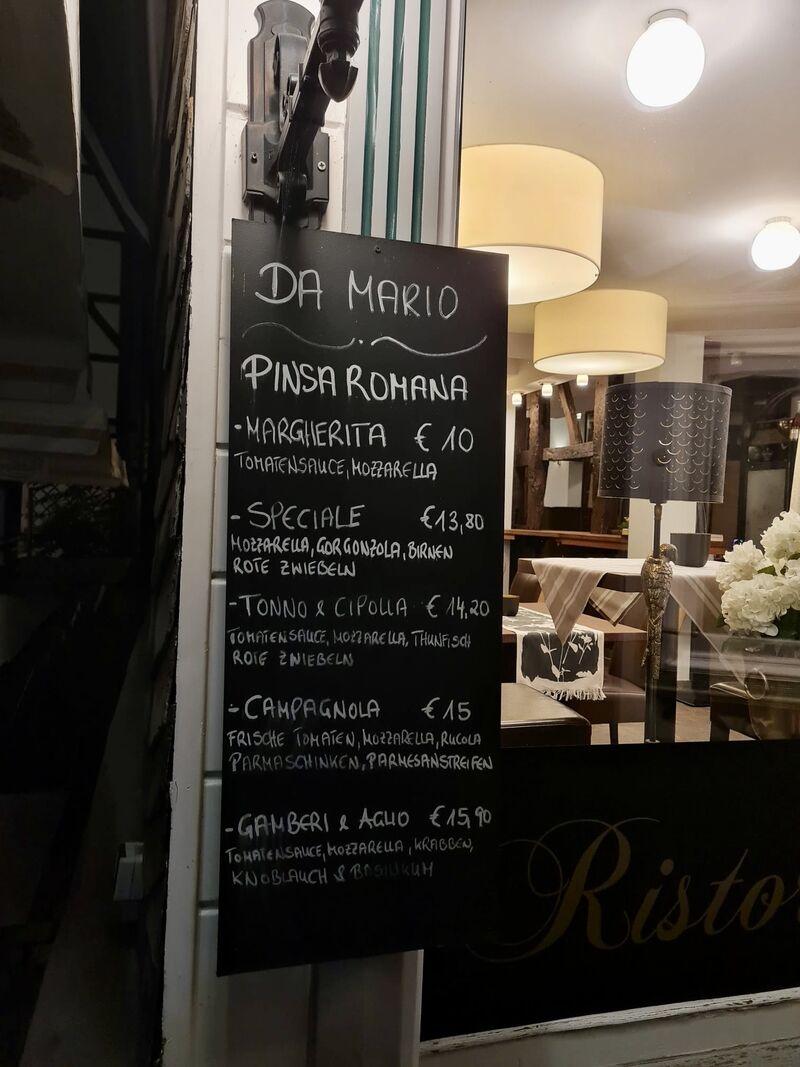 DA MARIO
PINSA ROMANA
- MARGHERITA € 10
TOMATENSAUCE, MOZZARELLA
- SPECIALE €13,80
MOZZARELLA, GORGONZOLA, BIRNEN
ROTE ZWIEBELN
- TONNO & CIPOLLA € 14,20
TOMATENSAUCE, MOZZARELLA, THUNFISCH
ROTE ZWIEBELN
- CAMPAGNOLA € 15
FRISCHE TOMATEN, MOZZARELLA, RUCOLA
PARMASCHINKEN, PARMESANSTREIFEN
- GAMBERI & AGLIO €15,90
TOMATENSAUCE, MOZZARELLA, KRABBEN,
KNOBLAUCH & BASILIKUM
Risto